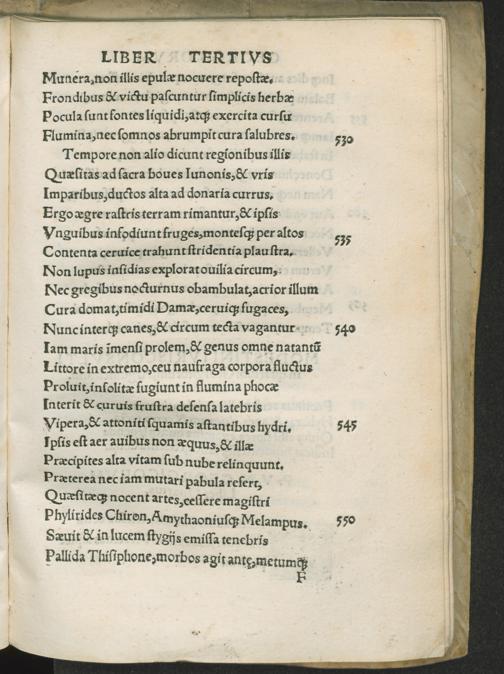 LIBER TERTIVS
Munera, non illis epulæ nocuere repostæ.
Frondibus & victu pascuntur simplicis herbæ
Pocula sunt fontes liquidi, atqꝫ exercita cursu
Flumina, nec somnos abrumpit cura salubres. 530
Tempore non alio dicunt regionibus illis
Quæsitas ad sacra boues Iunonis, & vris
Imparibus, ductos alta ad donaria currus.
Ergo ægre rastris terram rimantur, & ipsis
Vnguibus infodiunt fruges, montesqꝫ per altos 535
Contenta ceruice trahunt stridentia plaustra.
Non lupus insidias explorat ouilia circum,
Nec gregibus nocturnus obambulat, acrior illum
Cura domat, timidi Damæ, ceruiqꝫ fugaces,
Nunc interqꝫ canes, & circum tecta vagantur 540
Iam maris īmensi prolem, & genus omne natantū
Littore in extremo, ceu naufraga corpora fluctus
Proluit, insolitæ fugiunt in flumina phocæ
Interit & curuis frustra defensa latebris
Vipera, & attoniti squamis astantibus hydri. 545
Ipsis est aer auibus non æquus, & illæ
Præcipites alta vitam sub nube relinquunt.
Præterea nec iam mutari pabula refert,
Quæsitæqꝫ nocent artes, cessere magistri
Phylirides Chiron, Amythaoniusqꝫ Melampus. 550
Sæuit & in lucem stygijs emissa tenebris
Pallida Thisiphone, morbos agit antę, metumqꝫ
F